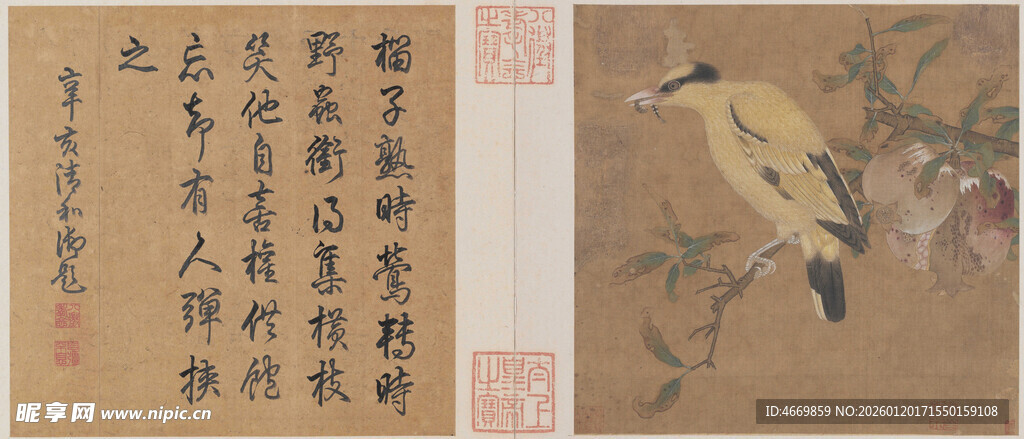 榴子熟時鶯轉時
野蟲銜得集橫枝
笑他自喜權供飽
忘却有人彈挾
之
辛亥清和御題
八徵耄念之寶
太上皇帝之寶
昵享网 www.nipic.cn
ID:4669859 NO:20260120171550159108